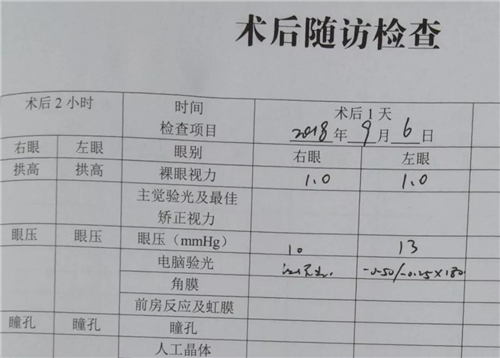 术后随访检查
术后2小时 时间 术后1天
检查项目 2018年9月6日
右眼 左眼 眼别 右眼 左眼
拱高 拱高 裸眼视力 1.0 1.0
主觉验光及最佳
矫正视力
眼压 眼压 眼压（mmHg） 10 13
电脑验光 -0.50/-0.25×180
角膜
前房反应及虹膜
瞳孔 瞳孔 瞳孔
人工晶体